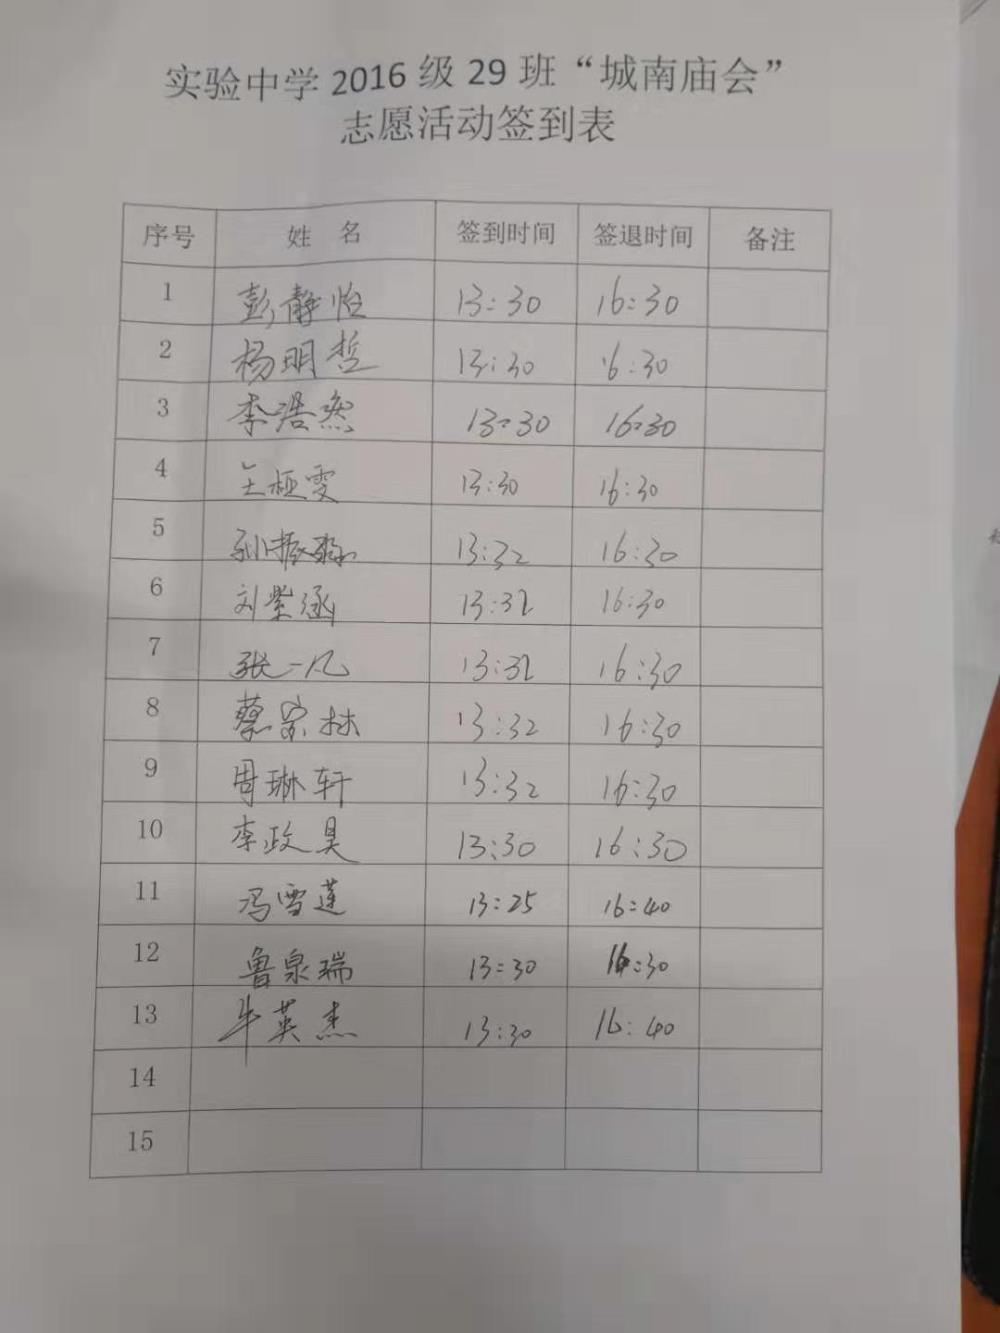 实验中学2016级29班“城南庙会”
志愿活动签到表
序号 姓 名 签到时间 签退时间 备注
1 彭静怡 13:30 16:30
2 杨明哲 13:30 16:30
3 李浩然 13:30 16:30
4 王極雯 13:30 16:30
5 孙振 13:32 16:30
6 刘紫涵 13:32 16:30
7 张一凡 13:32 16:30
8 蔡家林 13:32 16:30
9 周琳轩 13:32 16:30
10 李政昊 13:30 16:30
11 冯雪莲 13:25 16:40
12 鲁泉瑞 13:30 16:30
13 牛英杰 13:30 16:40
14
15